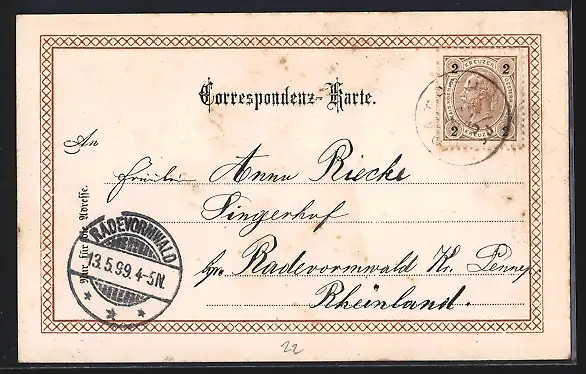 Correspondenz-Karte.
2 KREUZER 2
2 KREUZER 2
An
Fräulein Anna Riecke
Singerhof
bei Radevormwald Kr. Lennep
Rheinland.
Nur für die Adresse.
RADEVORMWALD
13.5.99. 4-5N.
22